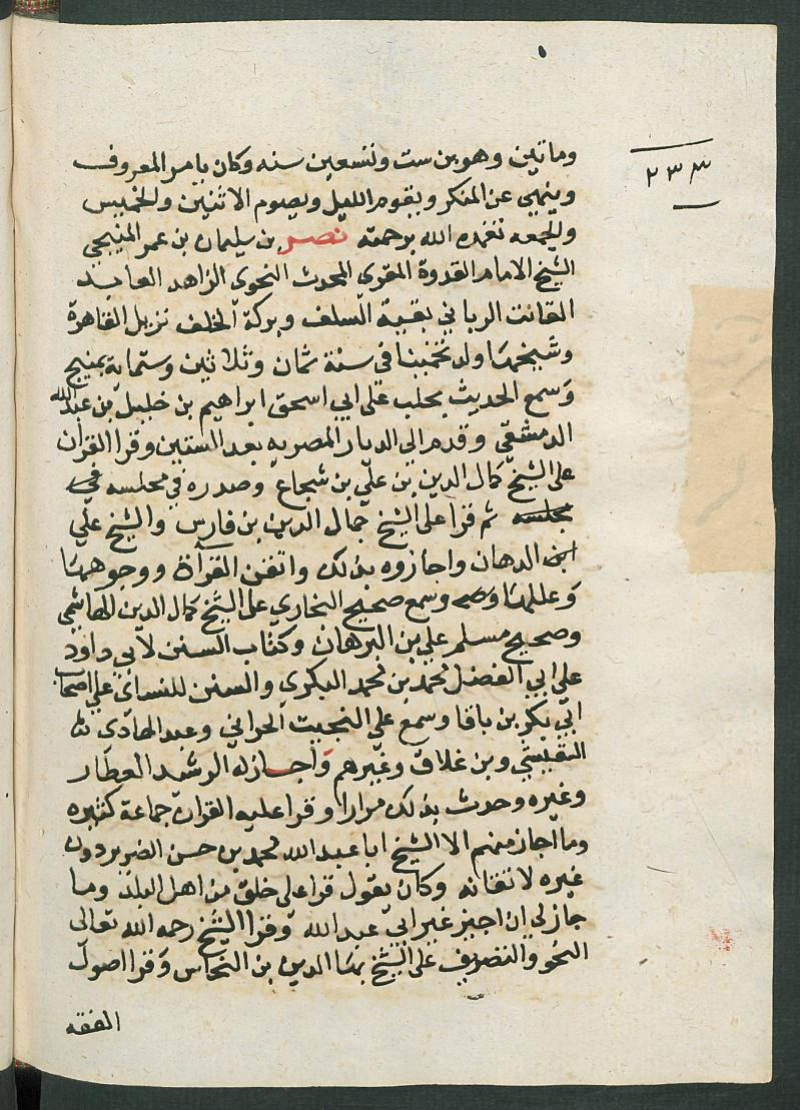 ٢٣٣
وماتين وهو بن ست وتسعين سنه وكان يامر المعروف
وينهي عن المنكر ويقوم الليل ويصوم الاثنين والخميس
والجمعه تغمده الله برحمته نصر بن سليمان بن عمر المنبجي
الشيخ الامام القدوة المقري المحدث النحوي الزاهد العابد
القانت الرباني بقية السلف وبركة الخلف نزيل القاهرة
وشيخها ولد تخمينا في سنة ثمان وثلاثين وستماية بمنبج
وسمع الحديث بحلب على ابي اسحق ابراهيم بن خليل بن عبد الله
الدمشقي وقدم الي الديار المصريه بعد الستين وقرا القران
على الشيخ كمال الدين بن علي بن شجاع وصدره في مجلسه في
مجلسه ثم قرا على الشيخ جمال الدين بن فارس والشيخ علي
ابن الدهان واجازوه بذلك واتقن القرآة ووجوهها
وعللها وسمع صحيح البخاري على الشيخ كمال الدين الهاشمي
وصحيح مسلم علي بن البرهان وكتاب السنن لابي داود
على ابي الفضل محمد بن محمد البكري والسنن للنساي علي اصحاب
ابي بكر بن باقا وسمع على النجيب الحراني وعبد الهادي
القيسي وبن غلاق وغيرهم واجازله الرشيد العطار
وغيره وحدث بذلك مرارا وقرا عليه القران جماعة كثيره
وما اجاز منهم الا الشيخ ابا عبد الله محمد بن حسن الضرير دون
غيره لاتقانه وكان يقول قرا على خلق من اهل البلد وما
جاز لي ان اجيز غير ابي عبد الله وقرا الشيخ رحمه الله تعالى
النحو والتصريف على الشيخ بها الدين بن النحاس وقرا اصول
الفقه